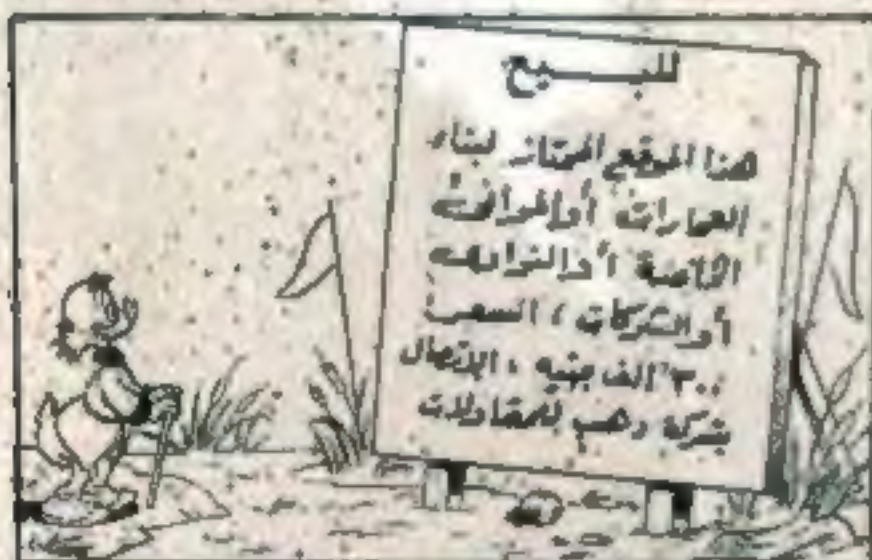 للبـــــيع
هذا الموقع الممتاز لبناء
العمارات أو المرافق
العامة أو النوادى
أو الشركات ، السعر
٣٠٠ ألف جنيه ، الاتصال
بشركة دهب للمقاولات